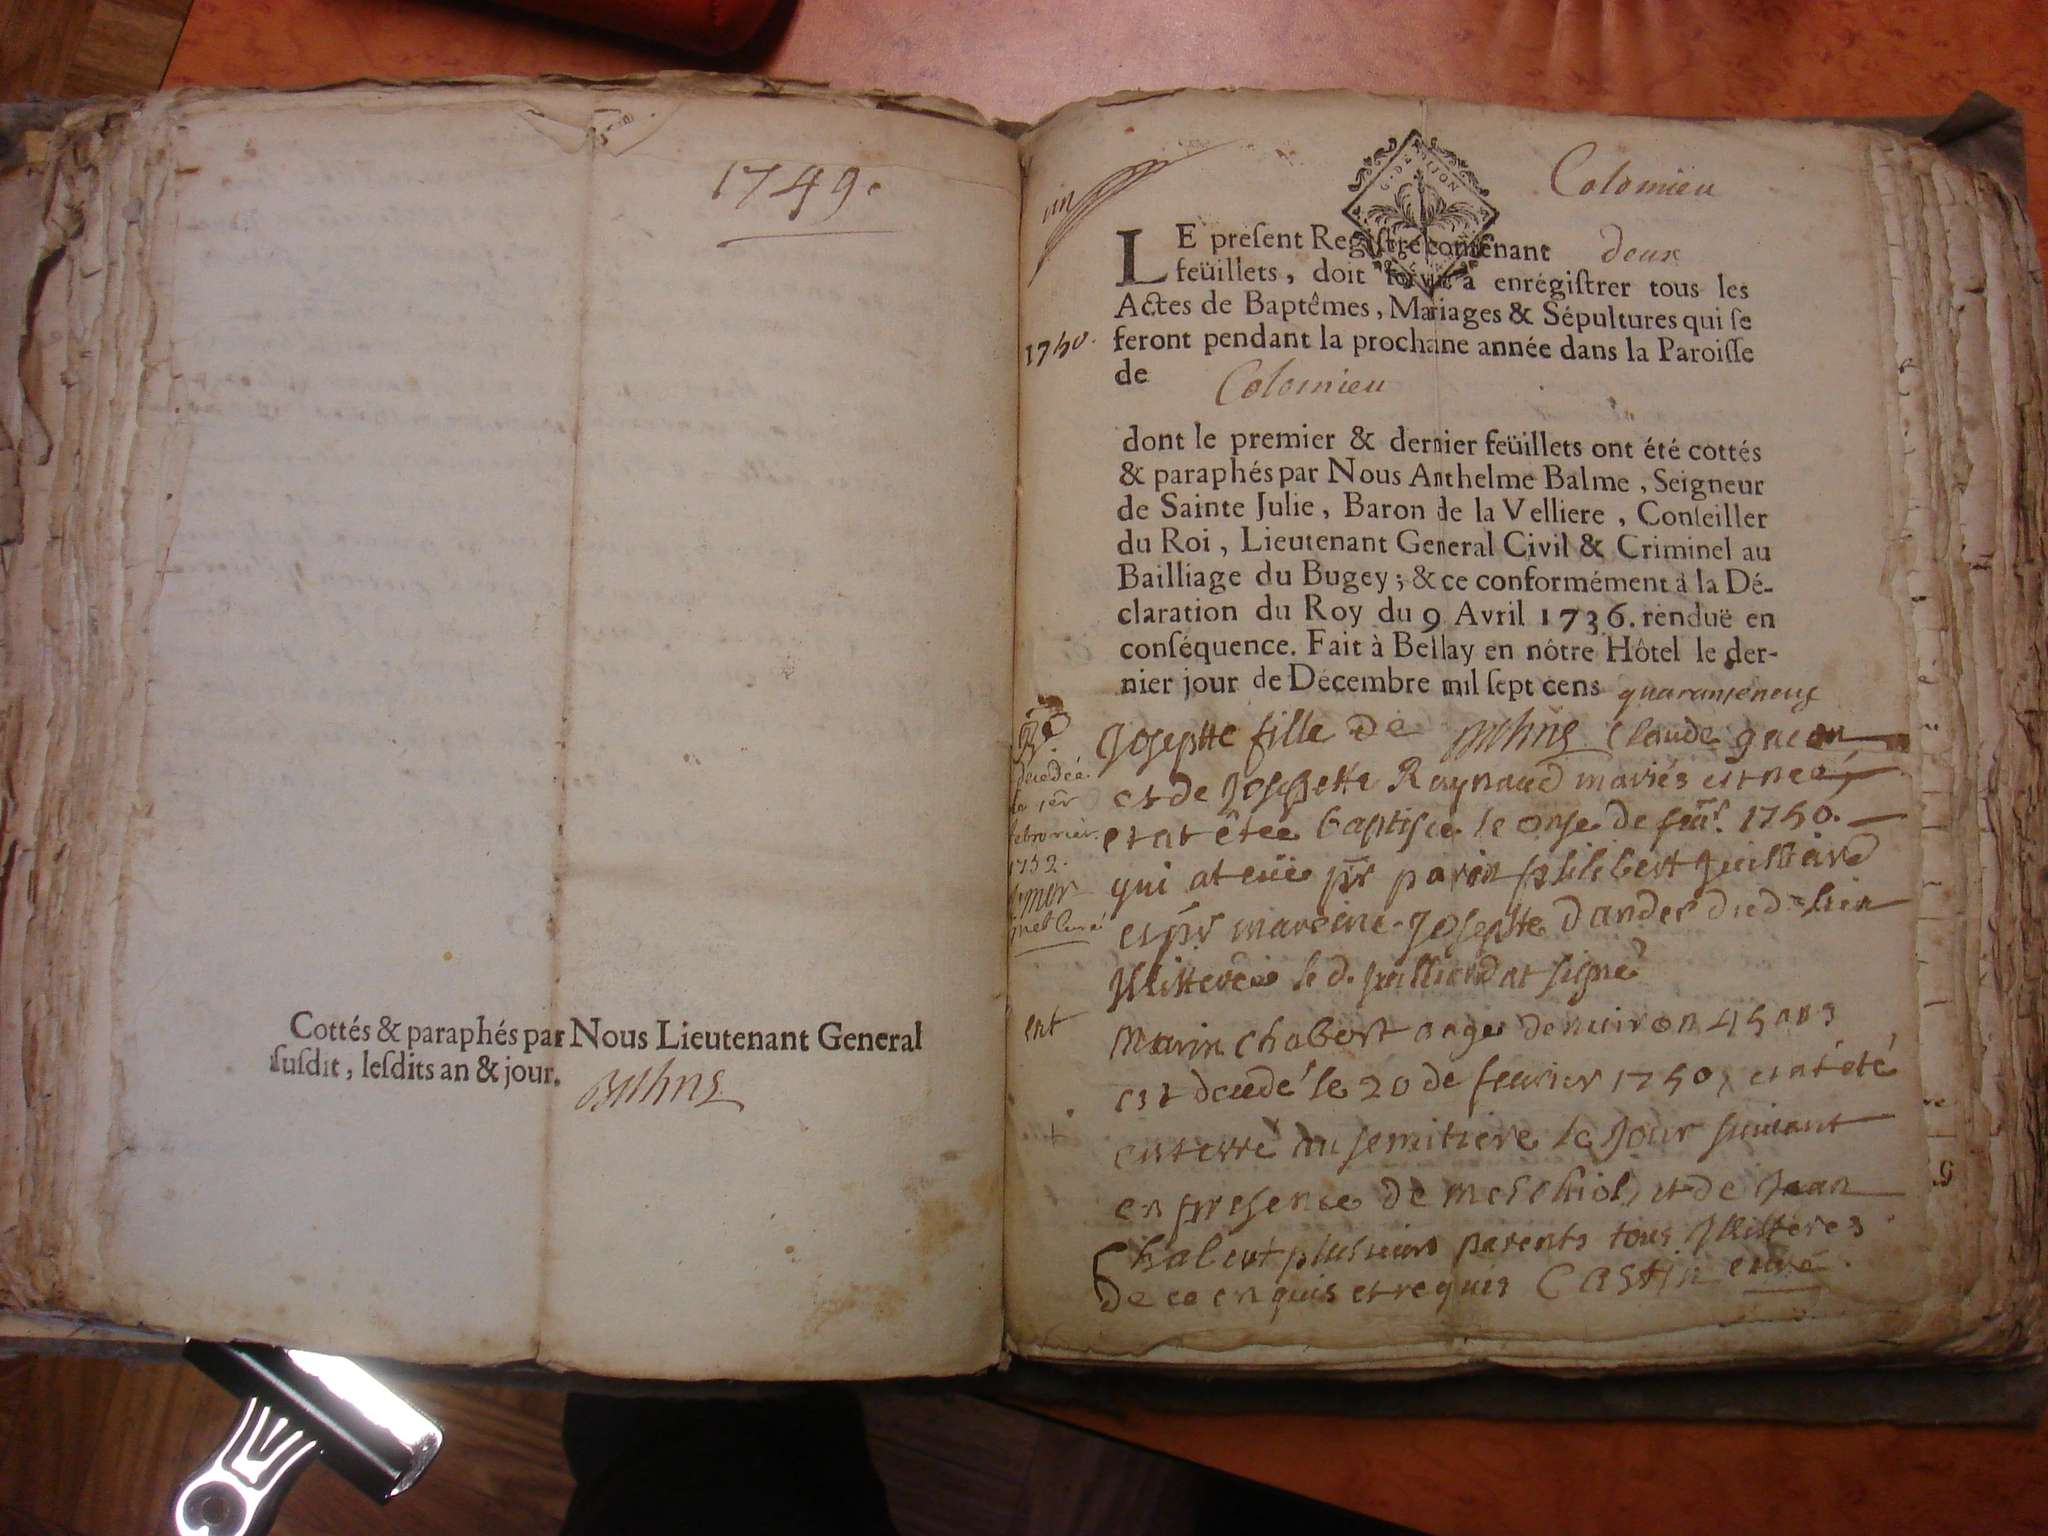 1749.
Cottés & paraphés par Nous Lieutenant General
ſuſdit, leſdits an & jour.
G. DE DIJON
Colomieu
LE preſent Regiſtre contenant deux
feüillets, doit ſervir à enrégiſtrer tous les
Actes de Baptêmes, Mariages & Sépultures qui ſe
feront pendant la prochaine année dans la Paroiſſe
de Colomieu
1750.
dont le premier & dernier feüillets ont été cottés
& paraphés par Nous Anthelme Balme, Seigneur
de Sainte Julie, Baron de la Velliere, Conſeiller
du Roi, Lieutenant General Civil & Criminel au
Bailliage du Bugey; & ce conformément à la Dé-
claration du Roy du 9 Avril 1736. renduë en
conſéquence. Fait à Bellay en nôtre Hôtel le der-
nier jour de Décembre mil ſept cens quaranteneuf
Josephte fille de Claude gacon
et de Josephette Raynaud mariés est neé
et at êtée baptisée le onse de 1750.
qui at eüe pr parin philibert Juilliard
et pr mareine Josephte dander dud. lieu
Illitereé le d. Juilliard at signé
decedée
le 1er
febvrier
1752.
ent
Marin Chabert agé denuiron 45 ans
est decedé le 20 de feurier 1750, et at été
enterré au semitiere le Jour suiuant
en presence de melchiol, et de Jean
Chabert plusieurs parents tous Illitéres
de ce enquis et requis Castin curé